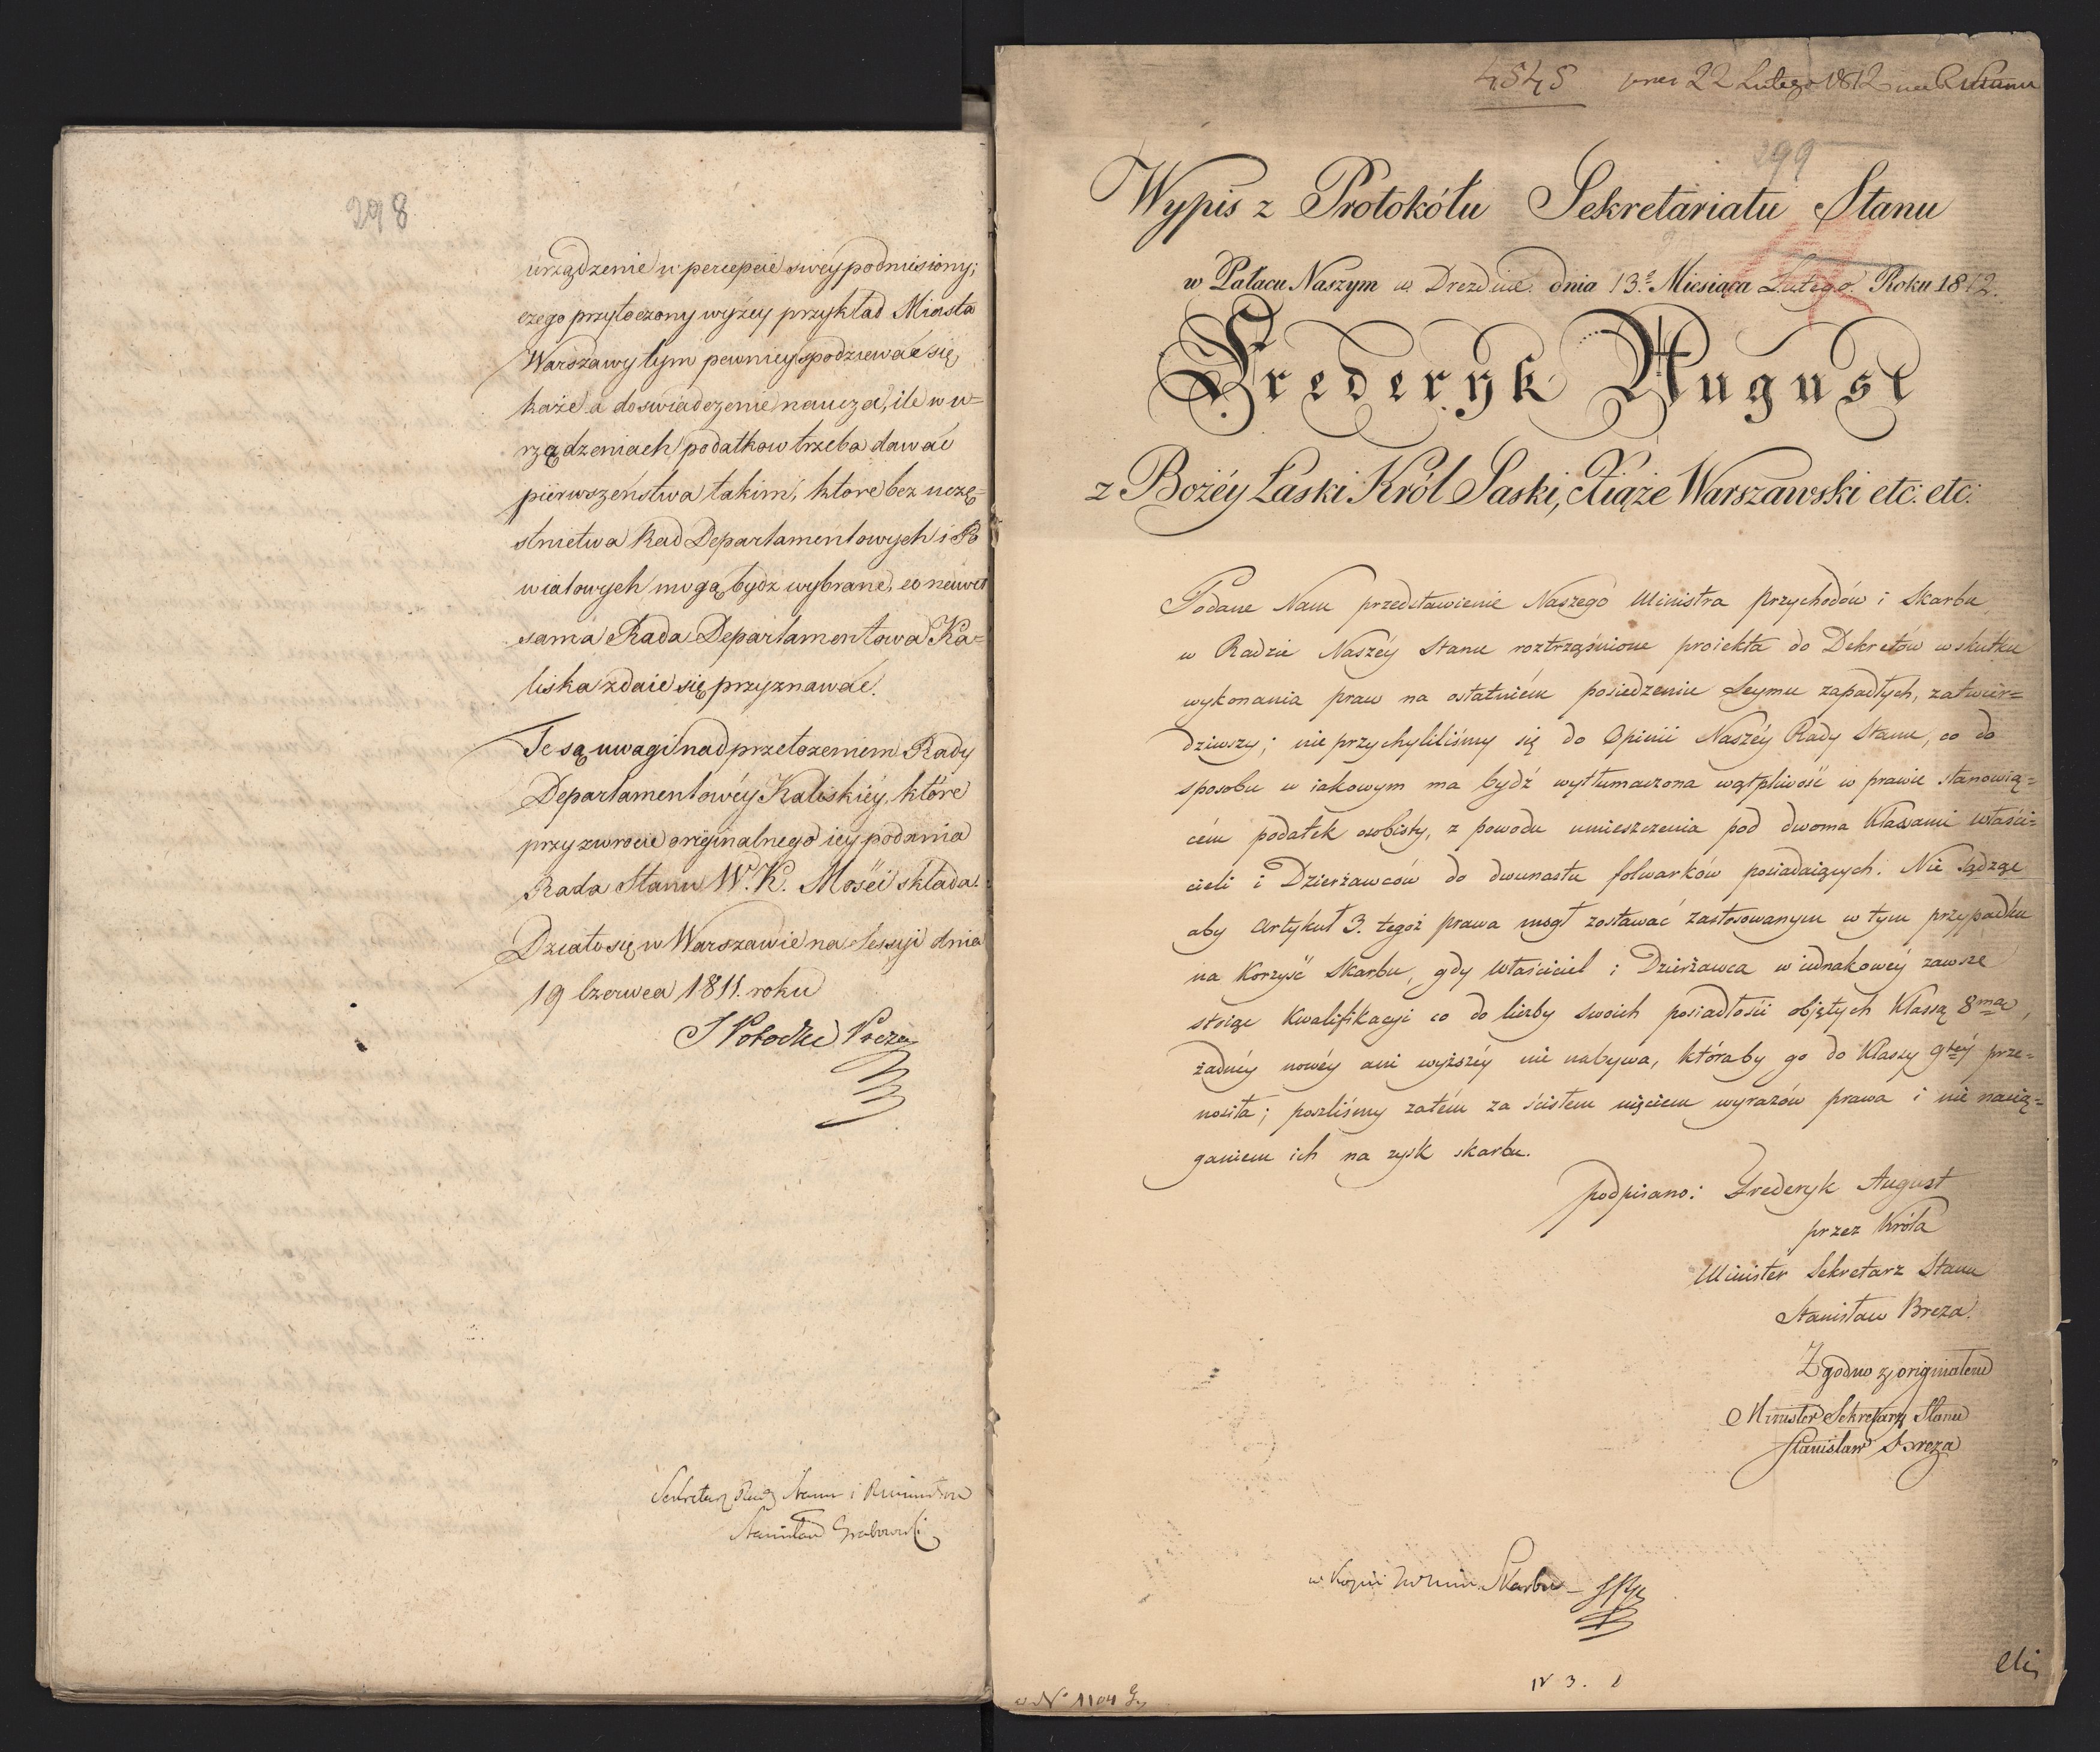 298
urządzenie w percepcie swey podniesiony;
czego przytoczony wyżey przykład Miasta
Warszawy tym pewniey spodziewać się
każe a doswiadczenie naucza, ile w u=
rządzeniach podatkow trzeba dawać
pierwszeństwa takim, ktore bez uczę=
stnictwa Rad Departamentowych i Po
wiatowych mogą bydź wybrane, co nawet
sama Rada Departamentowa Ka=
liska zdaie się przyznawać.
Te są uwagi nad przełożeniem Rady
Departamentowéy Kaliskiéy, które
przy zwrocie originalnego iey podania
Rada Stanu W. K. Mości składa.
Działo się w Warszawie na Sessyi dnia
19 Czerwca 1811. roku
S Potocki Prezes
Sekretarz Rady Stanu i Ministrow
Stanisław Grabowski
4545 prez 22 Lutego 1812 na R Stanu
299
Wypis z Protokółu Sekretariatu Stanu
w Pałacu Naszym w Dreznie dnia 13.º Miesiąca Lutego. Roku 1812.
Frederyk August
z Bożéy Łaski Król Saski, Xiąże Warszawski etc: etc:
Podane Nam przedstawienie Naszego Ministra Przychodów i Skarbu
w Radzie Naszéy Stanu roztrząśnione proiekta do Dekretów w skutku
wykonania praw na ostatniém posiedzeniu Seymu zapadłych, zatwier=
dziwszy; nie przychyliliśmy się do Opinii Naszéy Rady Stanu, co do
sposobu w iakowym ma bydź wytłumaczona wątpliwość w prawie stanowią=
cém podatek osobisty, z powodu umieszczenia pod dwoma Klassami właści=
cieli i Dzierżawców do dwunastu folwarków posiadaiących. Nie sądząc
aby Artykuł 3. tegoż prawa mógł zostawać zastosowanym w tym przypadku
na korzyść Skarbu, gdy właściciel i Dzierżawca w iednakowéy zawsze
stoiąc kwalifikacyi co do liczby swoich posiadłości objętych Klassą 8mą,
żadnéy nowéy ani wyższéy nie nabywa, któraby go do Klassy 9téy prze=
nosiła; poszliśmy zatém za ścisłem uięciem wyrazów prawa i nie nacią=
ganiem ich na zysk skarbu.
podpisano: Frederyk August
przez Króla
Minister Sekretarz Stanu
Stanisław Breza.
Zgodno z originałem
Minister Sekretarz Stanu
Stanisław Breza
w kopii Skarbu
N 3. 1
N° 1104